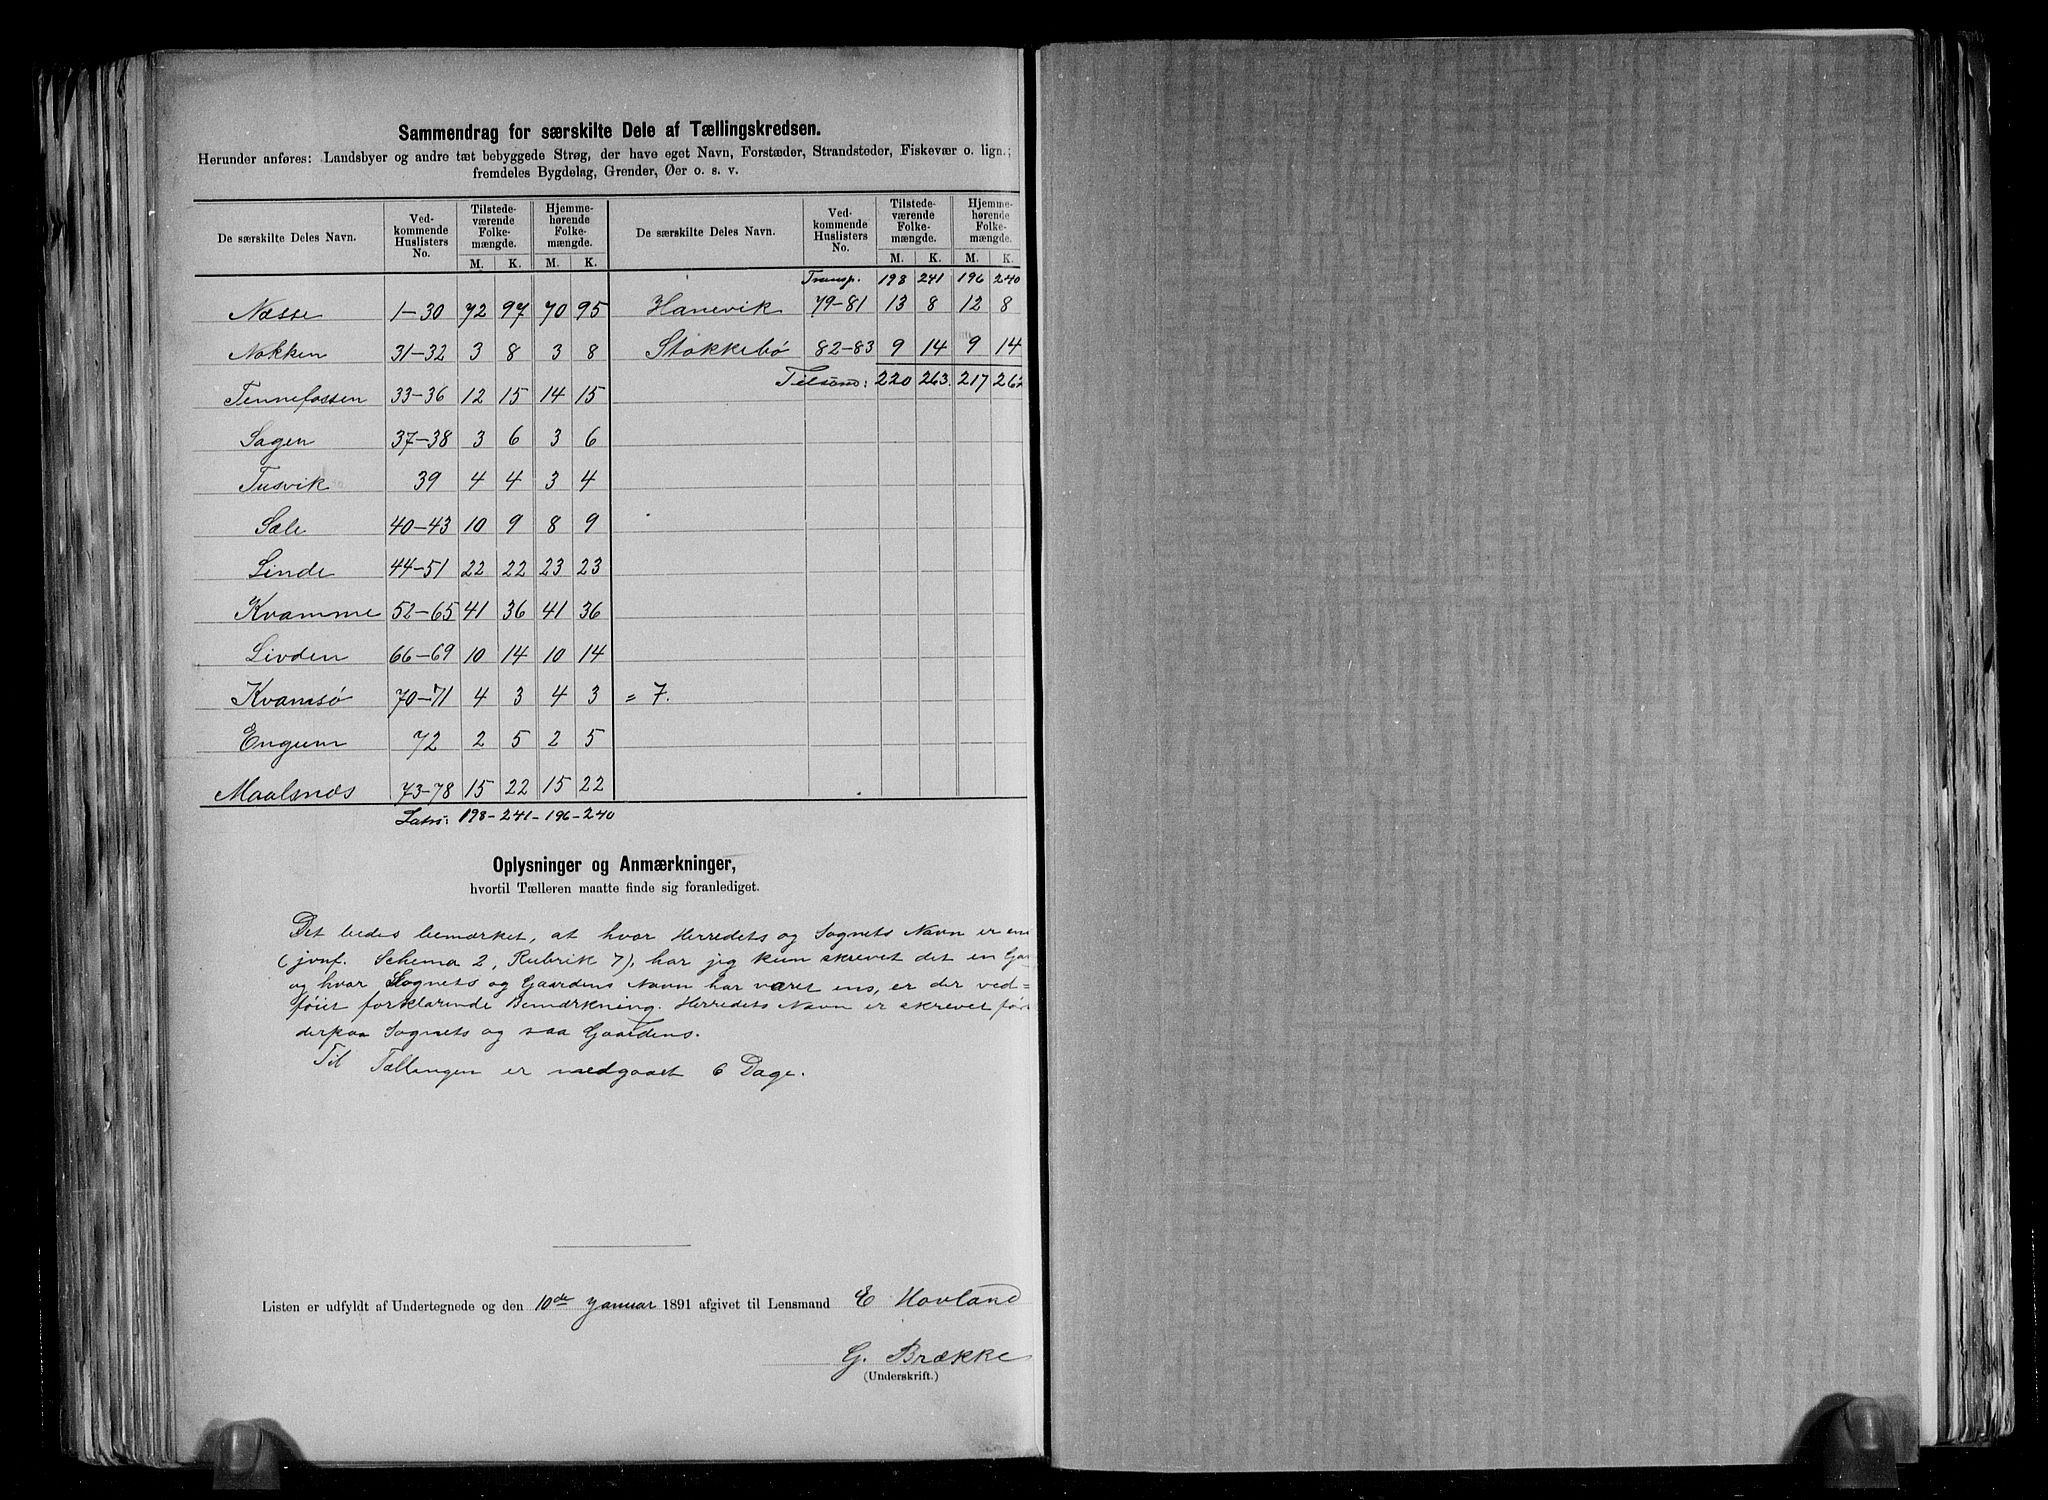 Sammendrag for særskilte Dele af Tællingskredsen.
Herunder anføres: Landsbyer og andre tæt bebyggede Strøg, der have eget Navn, Forstæder, Strandsteder, Fiskevær o. lign.;
fremdeles Bygdelag, Grender, Øer o. s. v.
De særskilte Deles Navn. Ved-kommende Huslisters No. Tilstede-værende Folke-mængde. Hjemme-hørende Folke-mængde. De særskilte Deles Navn. Ved-kommende Huslisters No. Tilstede-værende Folke-mængde. Hjemme-hørende Folke-mængde.
M. K. M. K. M. K. M. K.
Transp. 198 241 196 240
Næsse 1-30 72 97 70 95 Hanevik 79-81 13 8 12 8
Nokken 31-32 3 8 3 8 Stokkebø 82-83 9 14 9 14
Tilsam: 220 263. 217 262
Tennefossen 33-36 12 15 14 15
Sagen 37-38 3 6 3 6
Tusvik 39 4 4 3 4
Sæle 40-43 10 9 8 9
Linde 44-51 22 22 23 23
Kvamme 52-65 41 36 41 36
Livden 66-69 10 14 10 14
Kvamsø 70-71 4 3 4 3 = 7.
Engum 72 2 5 2 5
Maalsnæs 73-78 15 22 15 22
Latus: 198-241-196-240
Oplysninger og Anmærkninger,
hvortil Tælleren maatte finde sig foranlediget.
Det bedes bemærket, at hvor Herredets og Sognets Navn er ens
(jvnf. Schema 2, Rubrik 7), har jeg kun skrevet det en
og hvor Sognets og Gaardens Navn har været ens, er der ved=
føiet forklarende Bemærkning. Herredets Navn er skrevet
derpaa Sognets og saa Gaardens.
Til Tællingen er medgaaet 6 Dage.
Listen er udfyldt af Undertegnede og den 10de Januar 1891 afgivet til Lensmand E Hovland
G. Brække
(Underskrift.)